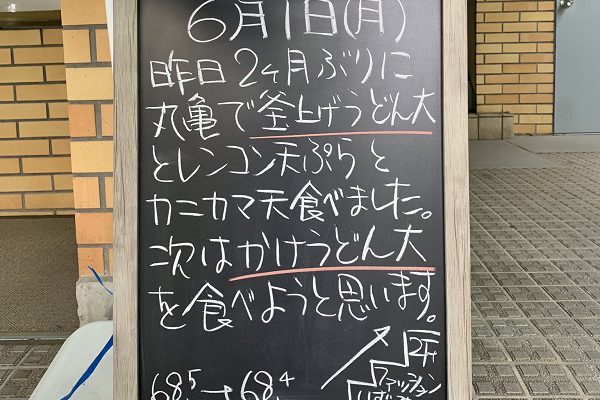 6月1日(月)
昨日2ヶ月ぶりに
丸亀で釜上げうどん大
とレンコン天ぷらと
カニカマ天食べました。
次はかけうどん大
を食べようと思います。
68.5→68.4
2F
ファッション
いずみ